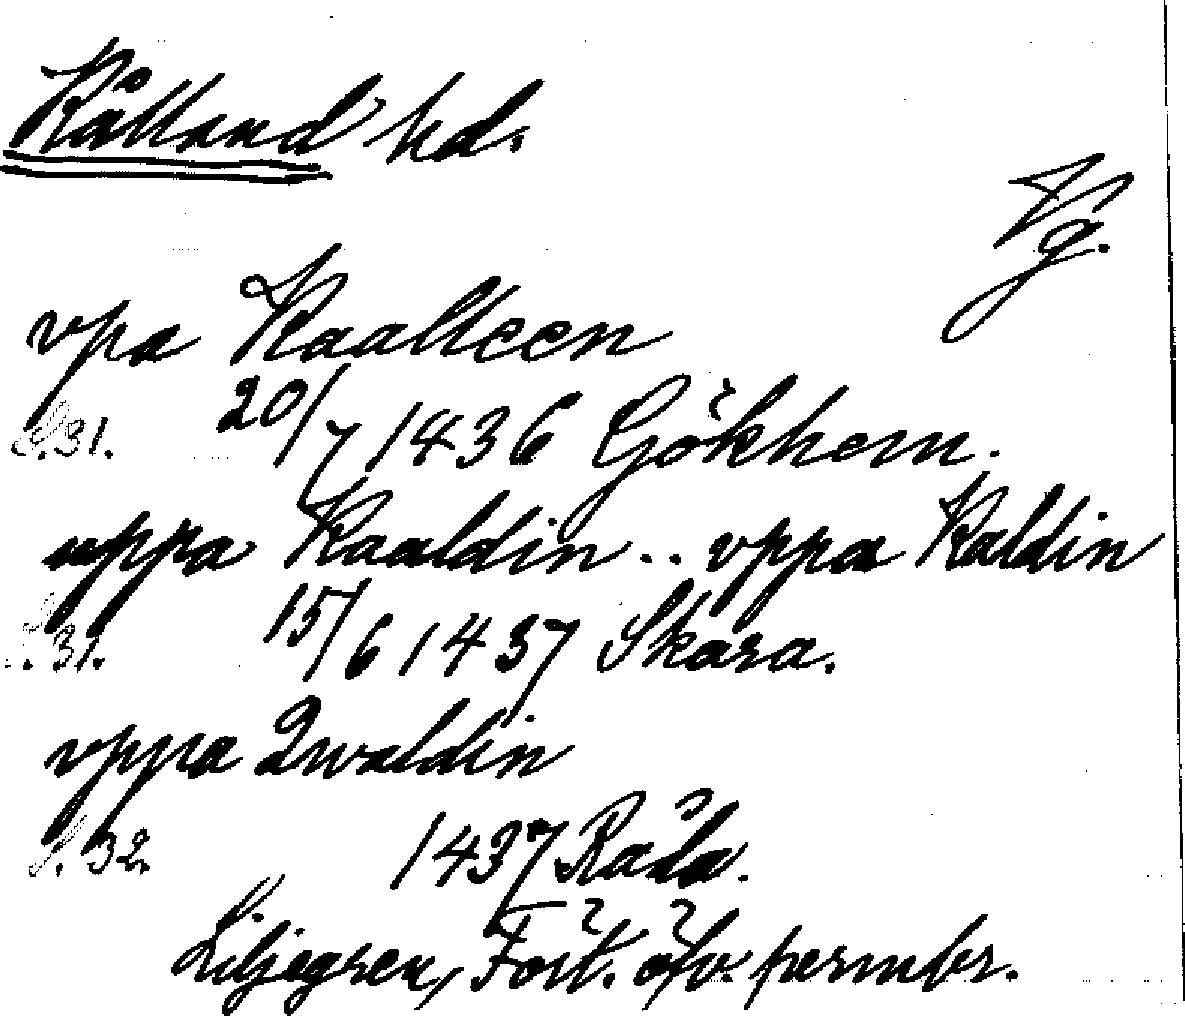 Kålland hd.
Vg.
vpa Kaalleen
S.31. 20/7 1436 Gökhem.
vppa Kaaldin .. vppa Kaldin
S.31. 15/6 1437 Skara.
vppa Qwaldin
S. 32. 1437 Råda.
Liljegren, Fört. öfv. permbr.